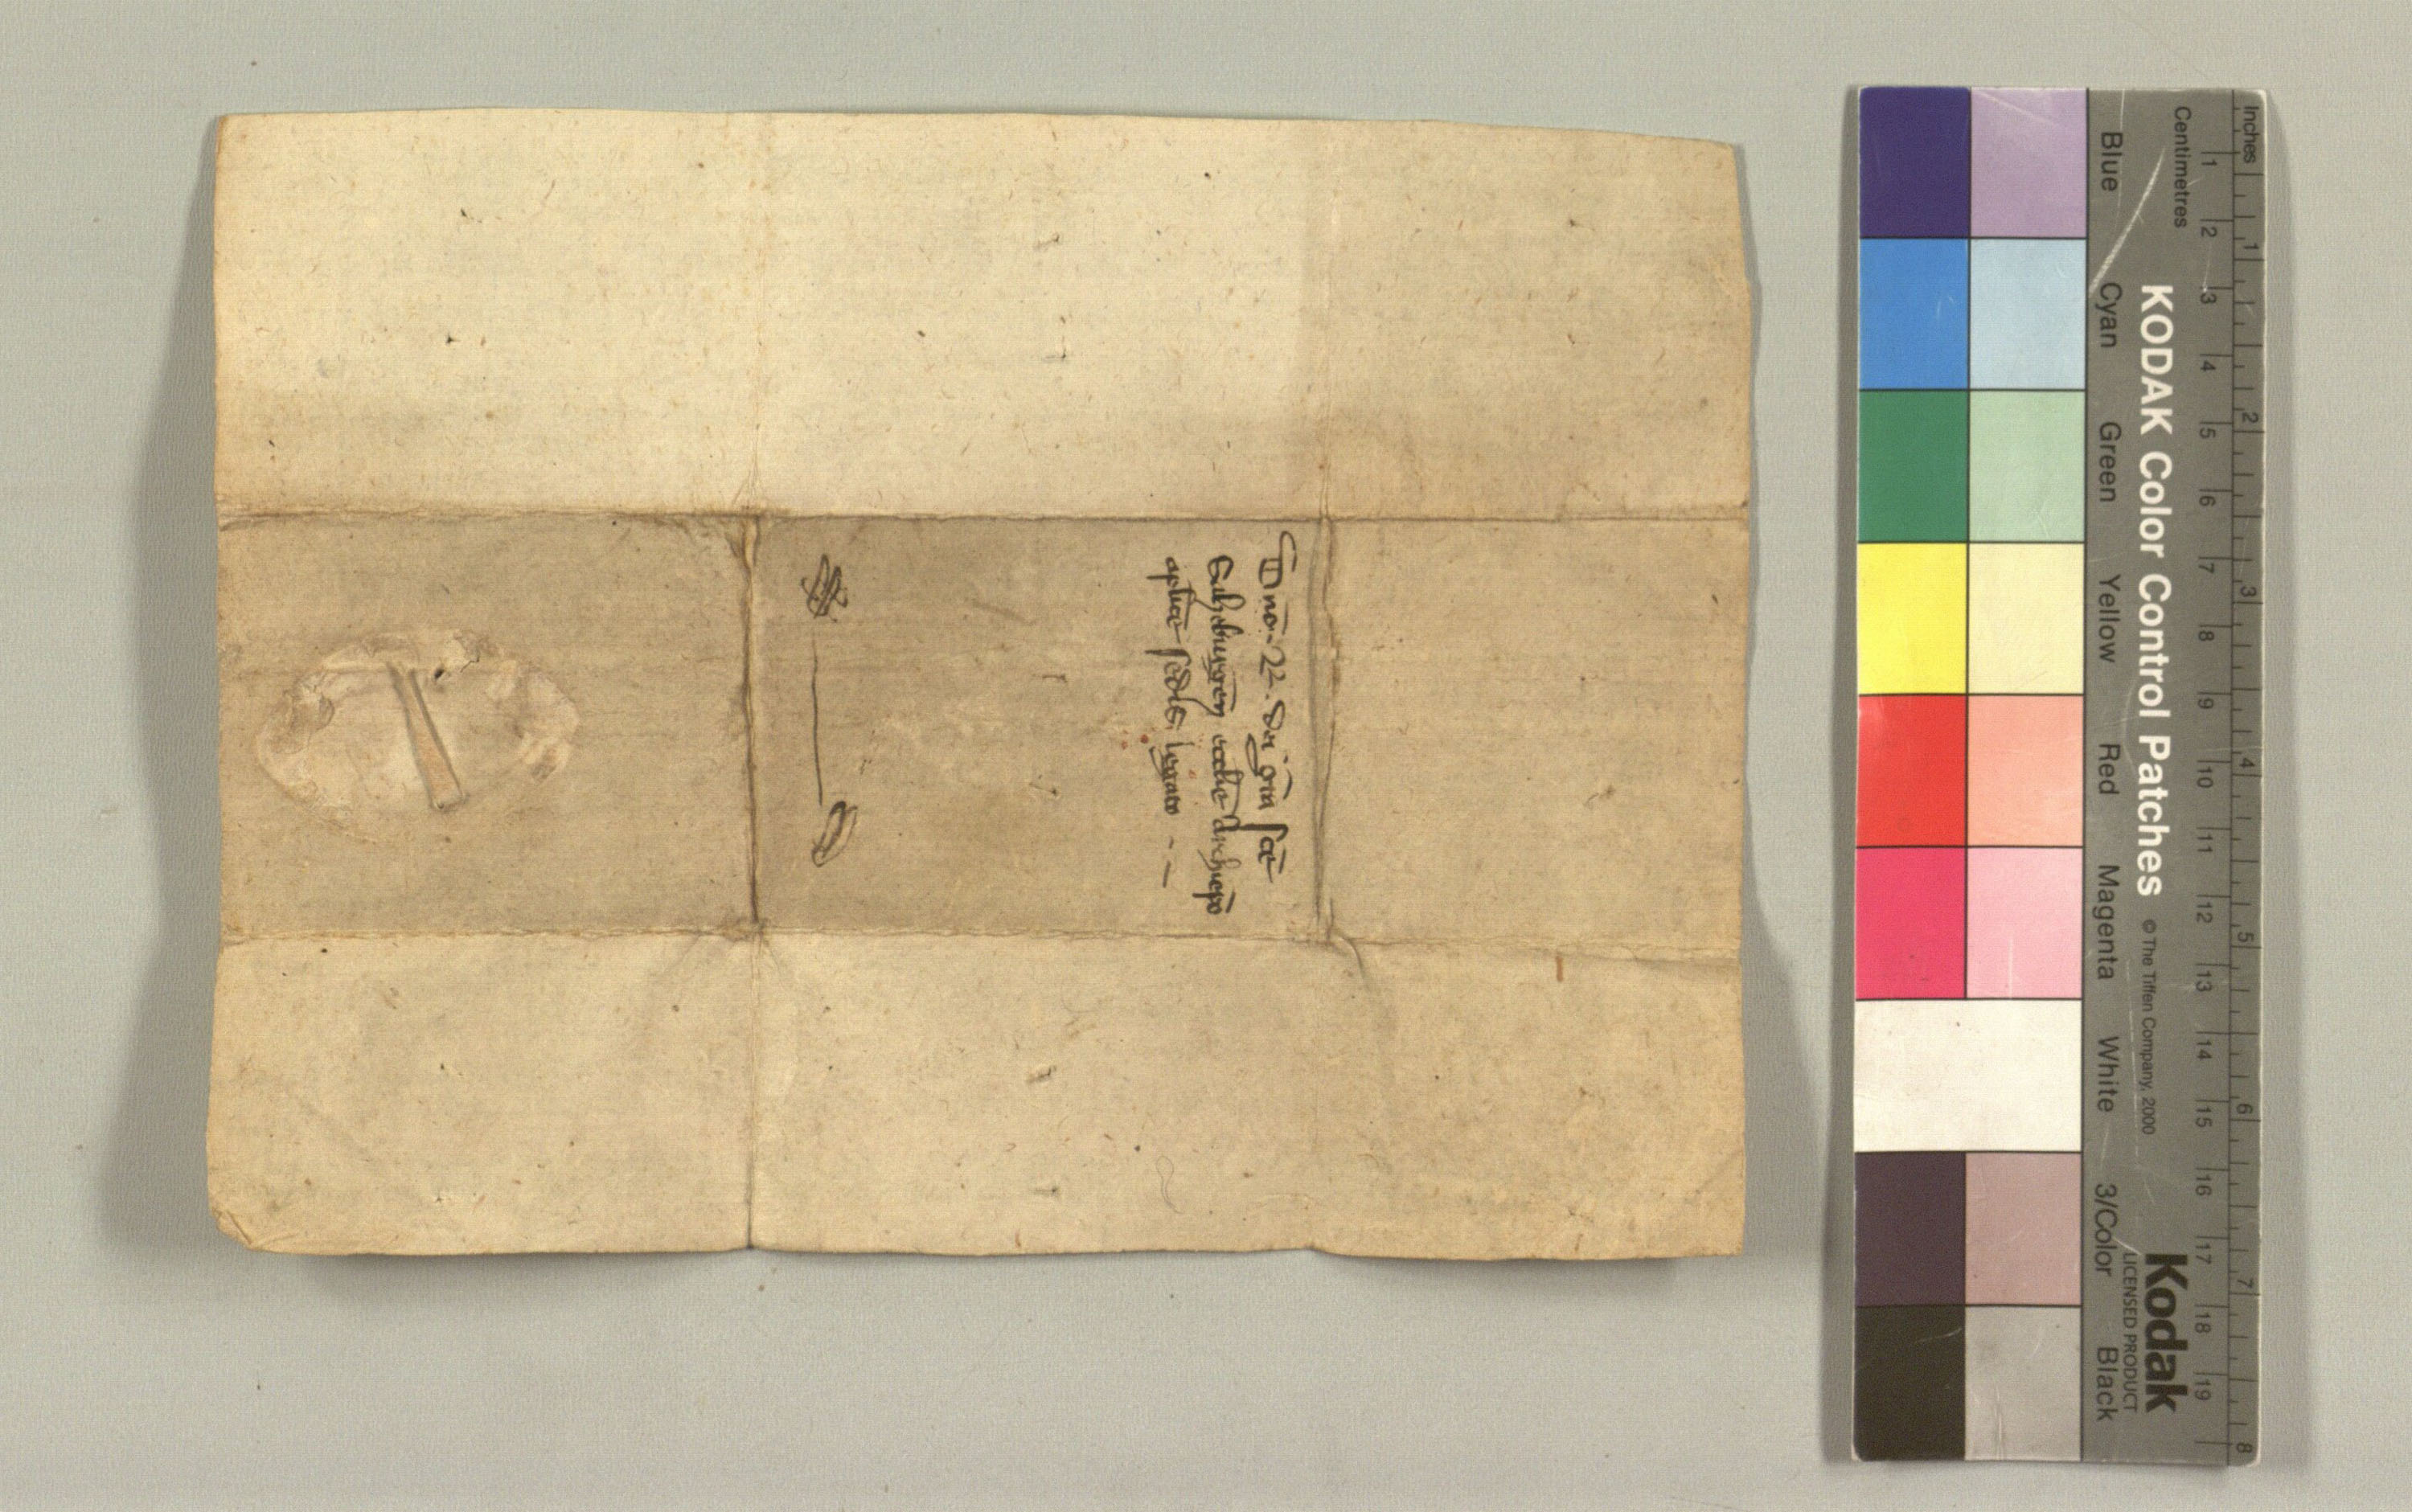 Dno. 22. dei gra sce
Salzeburgen ecclie Archiepo
aplice sedis legato
Inches
Centimetres
1 2 3 4 5 6 7 8 9 10 11 12 13 14 15 16 17 18 19
1 2 3 4 5 6 7 8
KODAK Color Control Patches © The Tiffen Company, 2000
Kodak
LICENSED PRODUCT
Blue Cyan Green Yellow Red Magenta White 3/Color Black